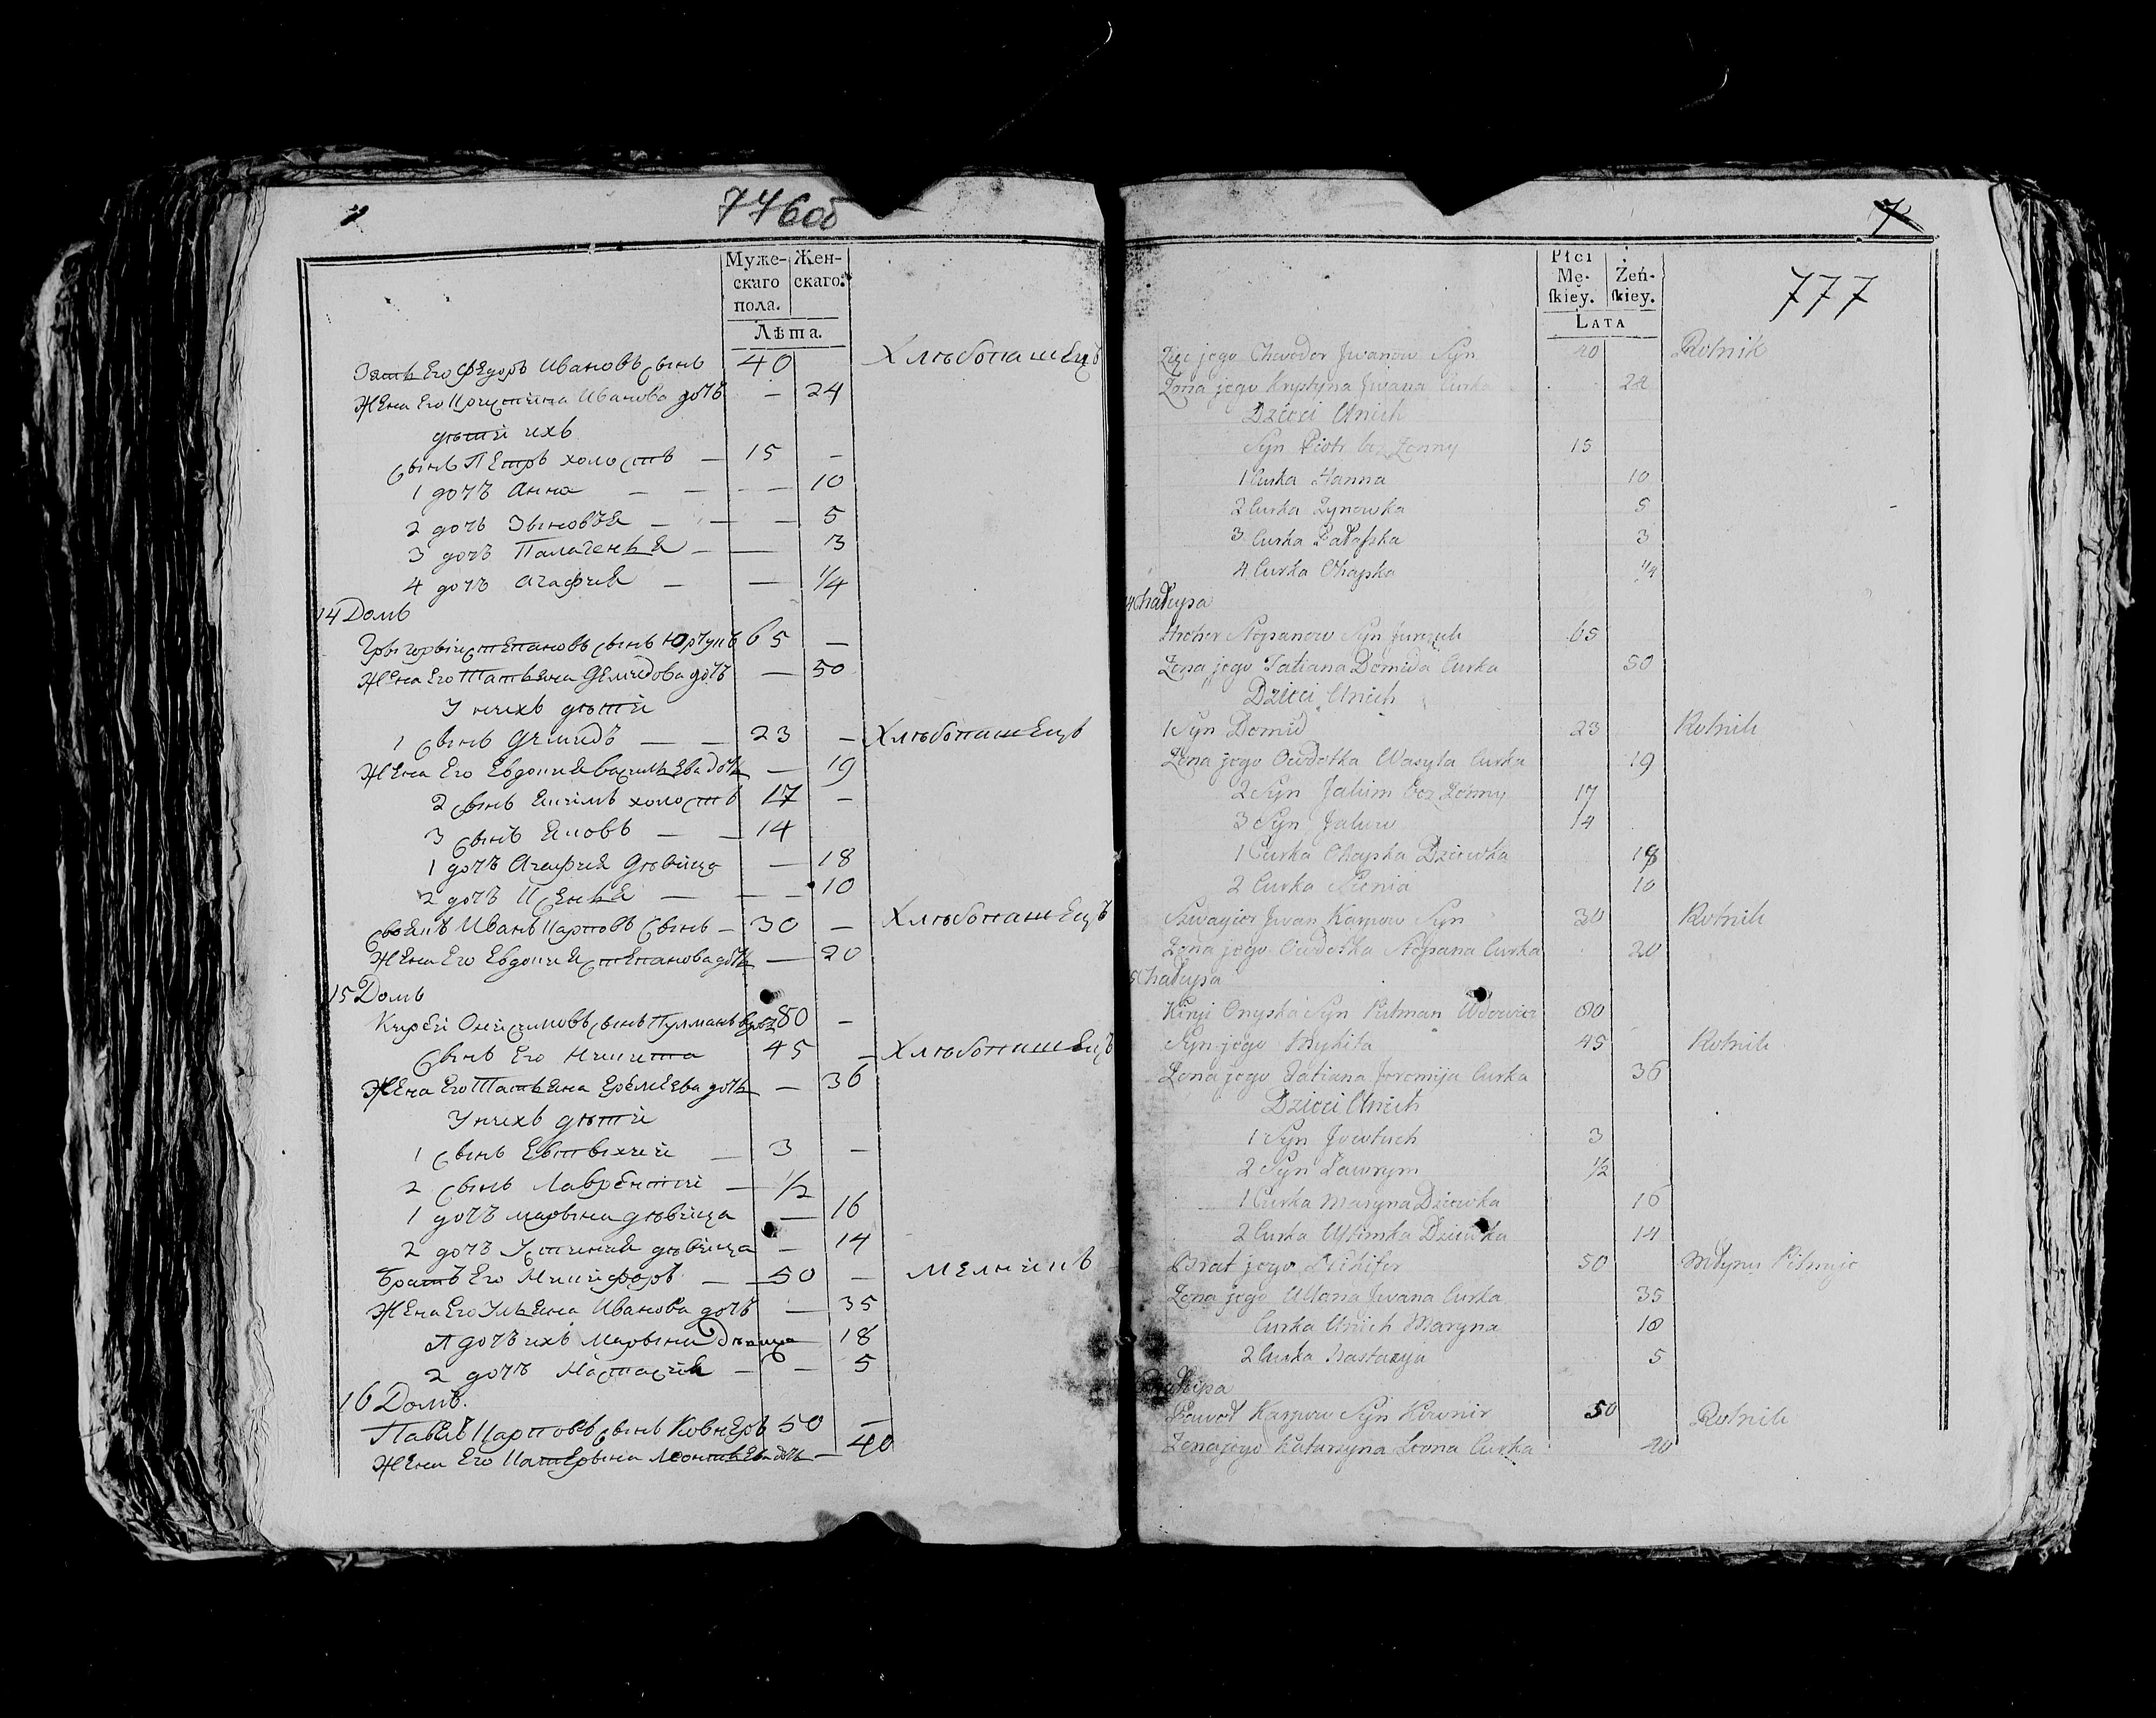 776об
Муже-
скаго
пола.
Жен-
скаго.
Лѣта.
Зять Его Федоръ Ивановъ сынъ 40 Хлѣбопашецъ
Жена Его Кристина Иванова дочь — 24
дѣтей ихъ
сынъ Петръ холостъ — 15 —
1 дочь Анна — — — 10
2 дочь Зыновъя — — — 5
3 дочь Палагенья — — 3
4 дочь Агафия — — 1/4
14 Домъ
Грыгорый степановъ сынъ Юрчукъ 65 —
Жена Его Татьяна Демидова дочь — 50
У нихъ дѣтей
1 сынъ Демидъ — — 23 — Хлѣбопашецъ
Жена Его Евдокия васильева дочь — 19
2 сынъ Якимъ холостъ 17 —
3 сынъ Яковъ — — 14
1 дочь Агафия дѣвица — 18
2 дочь Ксенья — — — 10
своякъ Иванъ Карповъ сынъ — 30 — Хлѣбопашецъ
Жена Его Евдокия степанова дочь — 20
15 Домъ
Кирей Онисимовъ сынъ Пулманъ 80 —
сынъ Его Никита 45 — Хлѣбопашецъ
Жена Его Татьяна Еремеева дочь — 36
У нихъ дѣтей
1 сынъ Евтыхий — 3 —
2 сынъ Лаврентий — 1/2
1 дочь марына дѣвица — 16
2 дочь Устиния дѣвица — 14
Братъ Его Никифоръ — — 50 — мелникъ
Жена Его Ульяна Иванова дочь — 35
1 дочь ихъ Марына Дѣвица 18
2 дочь Настасия — — 5
16 Домъ.
Павелъ Карповъ сынъ Ковнеръ 50 —
Жена Его Катерына Леонтьева дочь — 40
7
777
Płci
Mę-
skiey.
Żeń-
skiey.
Lata
Zięc jego Chwedor Jwanow Syn 40 Rolnik
Zona jego Krystyna Jwana Curka 24
Dzieci Unich
Syn Piotr bez Zonny 15
1 Curka Hanna 10
2 Curka Zynowka 5
3 Curka Pałaszka 3
4 Curka Ohapka 1/4
14 Chałupa
Hrehor Stepanow Syn Jurczuk 65
Zona jego Tatiana Domida Curka 50
Dzieci Unich
1 Syn Domid 23 Rolnik
Zona jego Owdotka Wasyla Curka 19
2 Syn Jakim bez Zonny 17
3 Syn Jakow 14
1 Curka Ohapka Dziewka 18
2 Curka Xienia 10
Szwagier Jwan Karpow Syn 30 Rolnik
Zona jego Owdotka Stepana Curka 20
15 Chałupa
Kiryj Onyska Syn Putman Wdowiec 80
Syn jego Mykita 45 Rolnik
Zona jego Tatiana Jeremija Curka 36
Dzieci Unich
1 Syn Jewtuch 3
2 Syn Ławryn 1/2
1 Curka Maryna Dziewka 16
2 Curka Ustimka Dziewka 14
Brat jego Nikifor 50 Młynu
Zona jego Ullana Jwana Curka 35
Curka Unich Maryna 18
2 Curka Nastazya 5
Chałupa
Paweł Karpow Syn Kownir 50 Rolnik
Zona jego Katarzyna Leona Curka 40